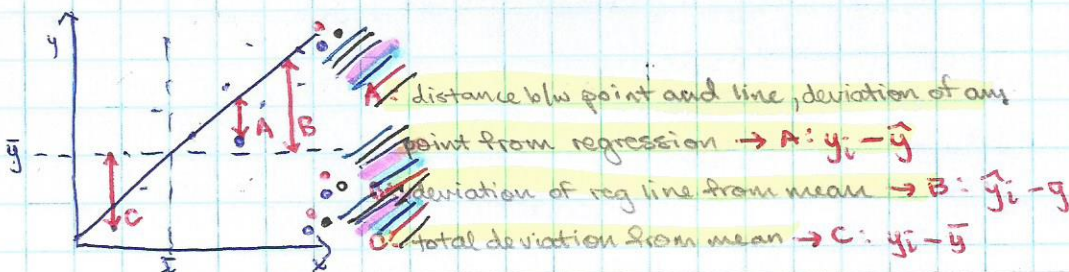 y
A
B
C
ȳ
x̄
x
A: distance b/w point and line, deviation of any
point from regression → A: yᵢ - ŷ
deviation of reg line from mean → B: ŷᵢ - ȳ
total deviation from mean → C: yᵢ - ȳ